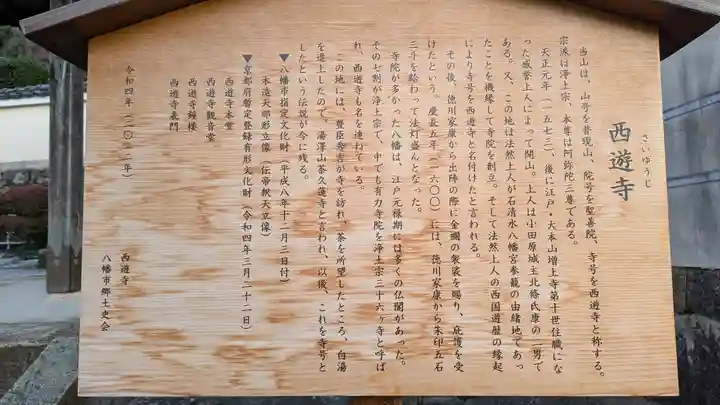 さいゆうじ
西遊寺
当山は、山号を普現山、院号を聖善院、寺号を西遊寺と称する。
宗派は浄土宗、本尊は阿弥陀三尊である。
天正元年（一五七三）、後に江戸・大本山増上寺第十世住職にな
った感誉上人によって開山。上人は小田原城主北條氏康の一男で
ある。又、この地は法然上人が石清水八幡宮参籠の由緒地であっ
たことを機縁として寺院を創立。そして法然上人の西国遊歴の縁起
により寺号を西遊寺と名付けたと言われる。
その後、徳川家康から出陣の際に金襴の袈裟を賜り、庇護を受
けたという。慶長五年（一六〇〇）には、徳川家康から朱印五石
三斗を給わって法灯盛んとなった。
寺院が多かった八幡は、江戸元禄期には多くの仏閣があった。
その七割が浄土宗で、中でも有力寺院を浄土宗三十六ヶ寺と呼ば
れ、西遊寺も名を連ねている。
この地には、豊臣秀吉が寺を訪れ、茶を所望したところ、白湯
を進上したので、湯澤山茶久蓮寺と言われ、以後、これを寺号と
したという伝説が今に残る。
▼八幡市指定文化財（平成八年十二月三日付）
木造天部形立像（伝帝釈天立像）
▼京都府暫定登録有形文化財（令和四年三月二十二日）
西遊寺本堂
西遊寺観音堂
西遊寺鐘楼
西遊寺表門
令和四年（二〇二二年）
西遊寺
八幡市郷土史会